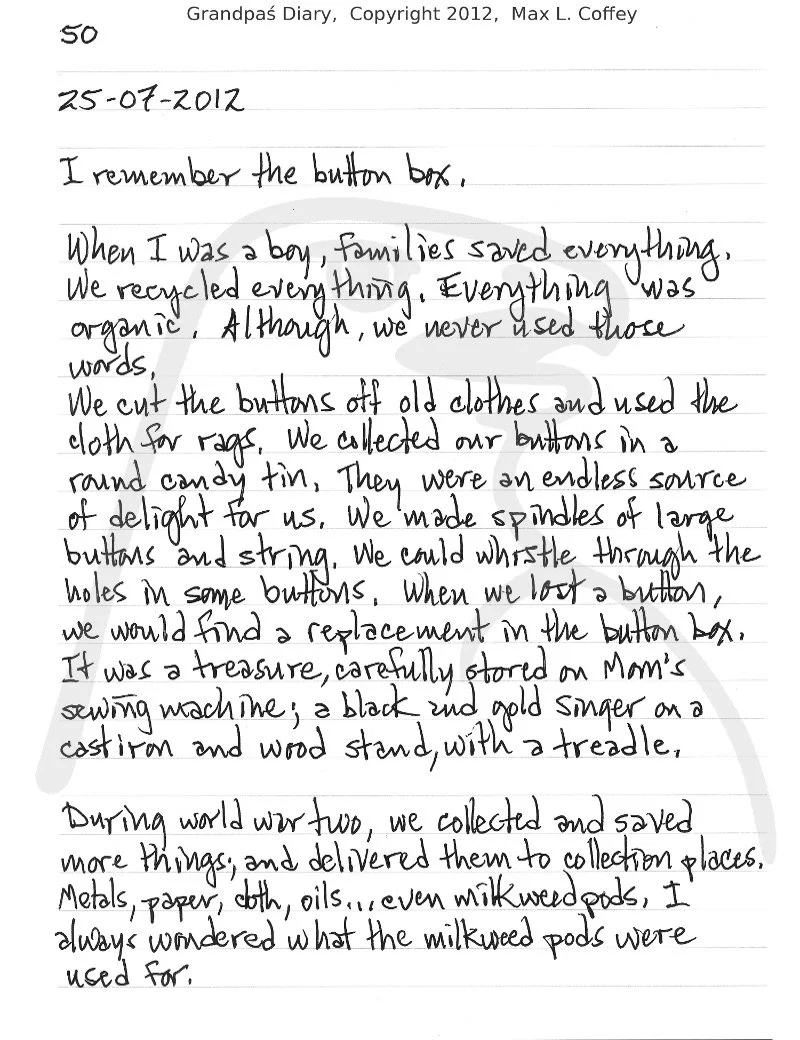 Grandpaś Diary, Copyright 2012, Max L. Coffey
50
25-07-2012
I remember the button box.
When I was a boy, families saved everything.
We recycled everything. Everything was
organic. Although, we never used those
words.
We cut the buttons off old clothes and used the
cloth for rags. We collected our buttons in a
round candy tin. They were an endless source
of delight for us. We made spindles of large
buttons and string. We could whistle through the
holes in some buttons. When we lost a button,
we would find a replacement in the button box.
It was a treasure, carefully stored on Mom's
sewing machine; a black and gold Singer on a
cast iron and wood stand, with a treadle.
During world war two, we collected and saved
more things; and delivered them to collection places.
Metals, paper, cloth, oils... even milkweed pods. I
always wondered what the milkweed pods were
used for.